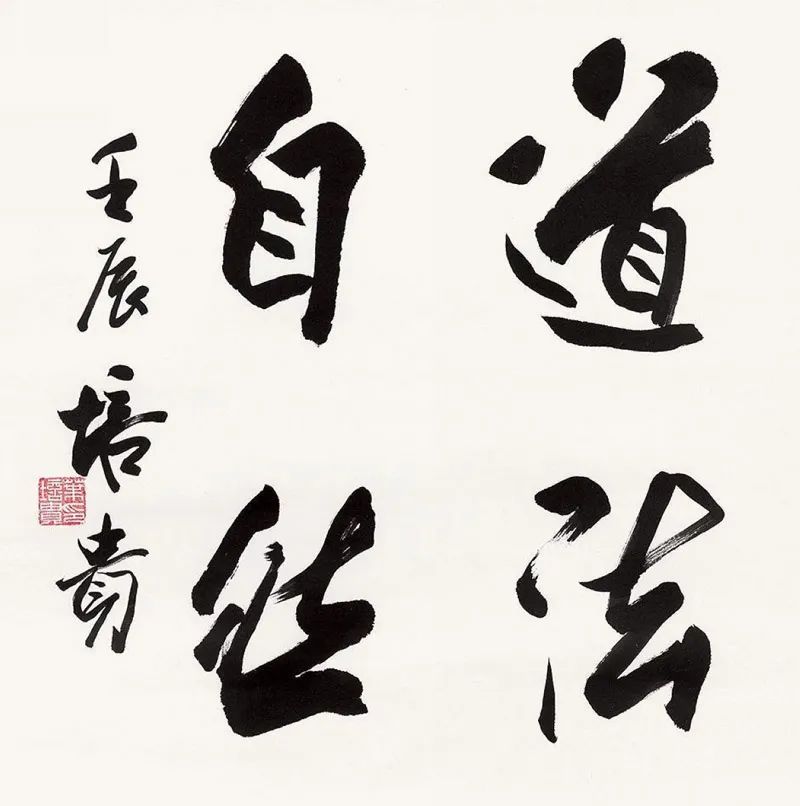 道法
自然
壬辰培贵